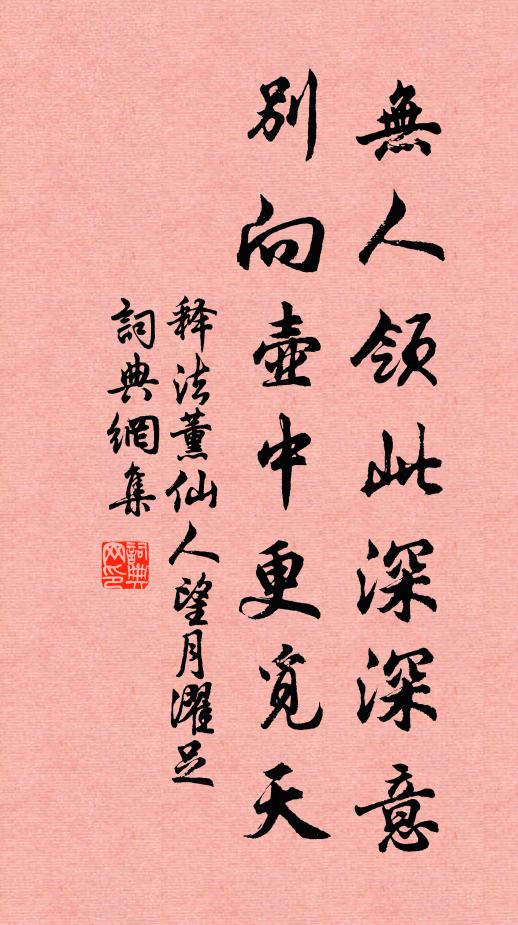 無人領此深深意
別向壺中更覓天
释法薰仙人望月濯足
詞典網集
詞典网印